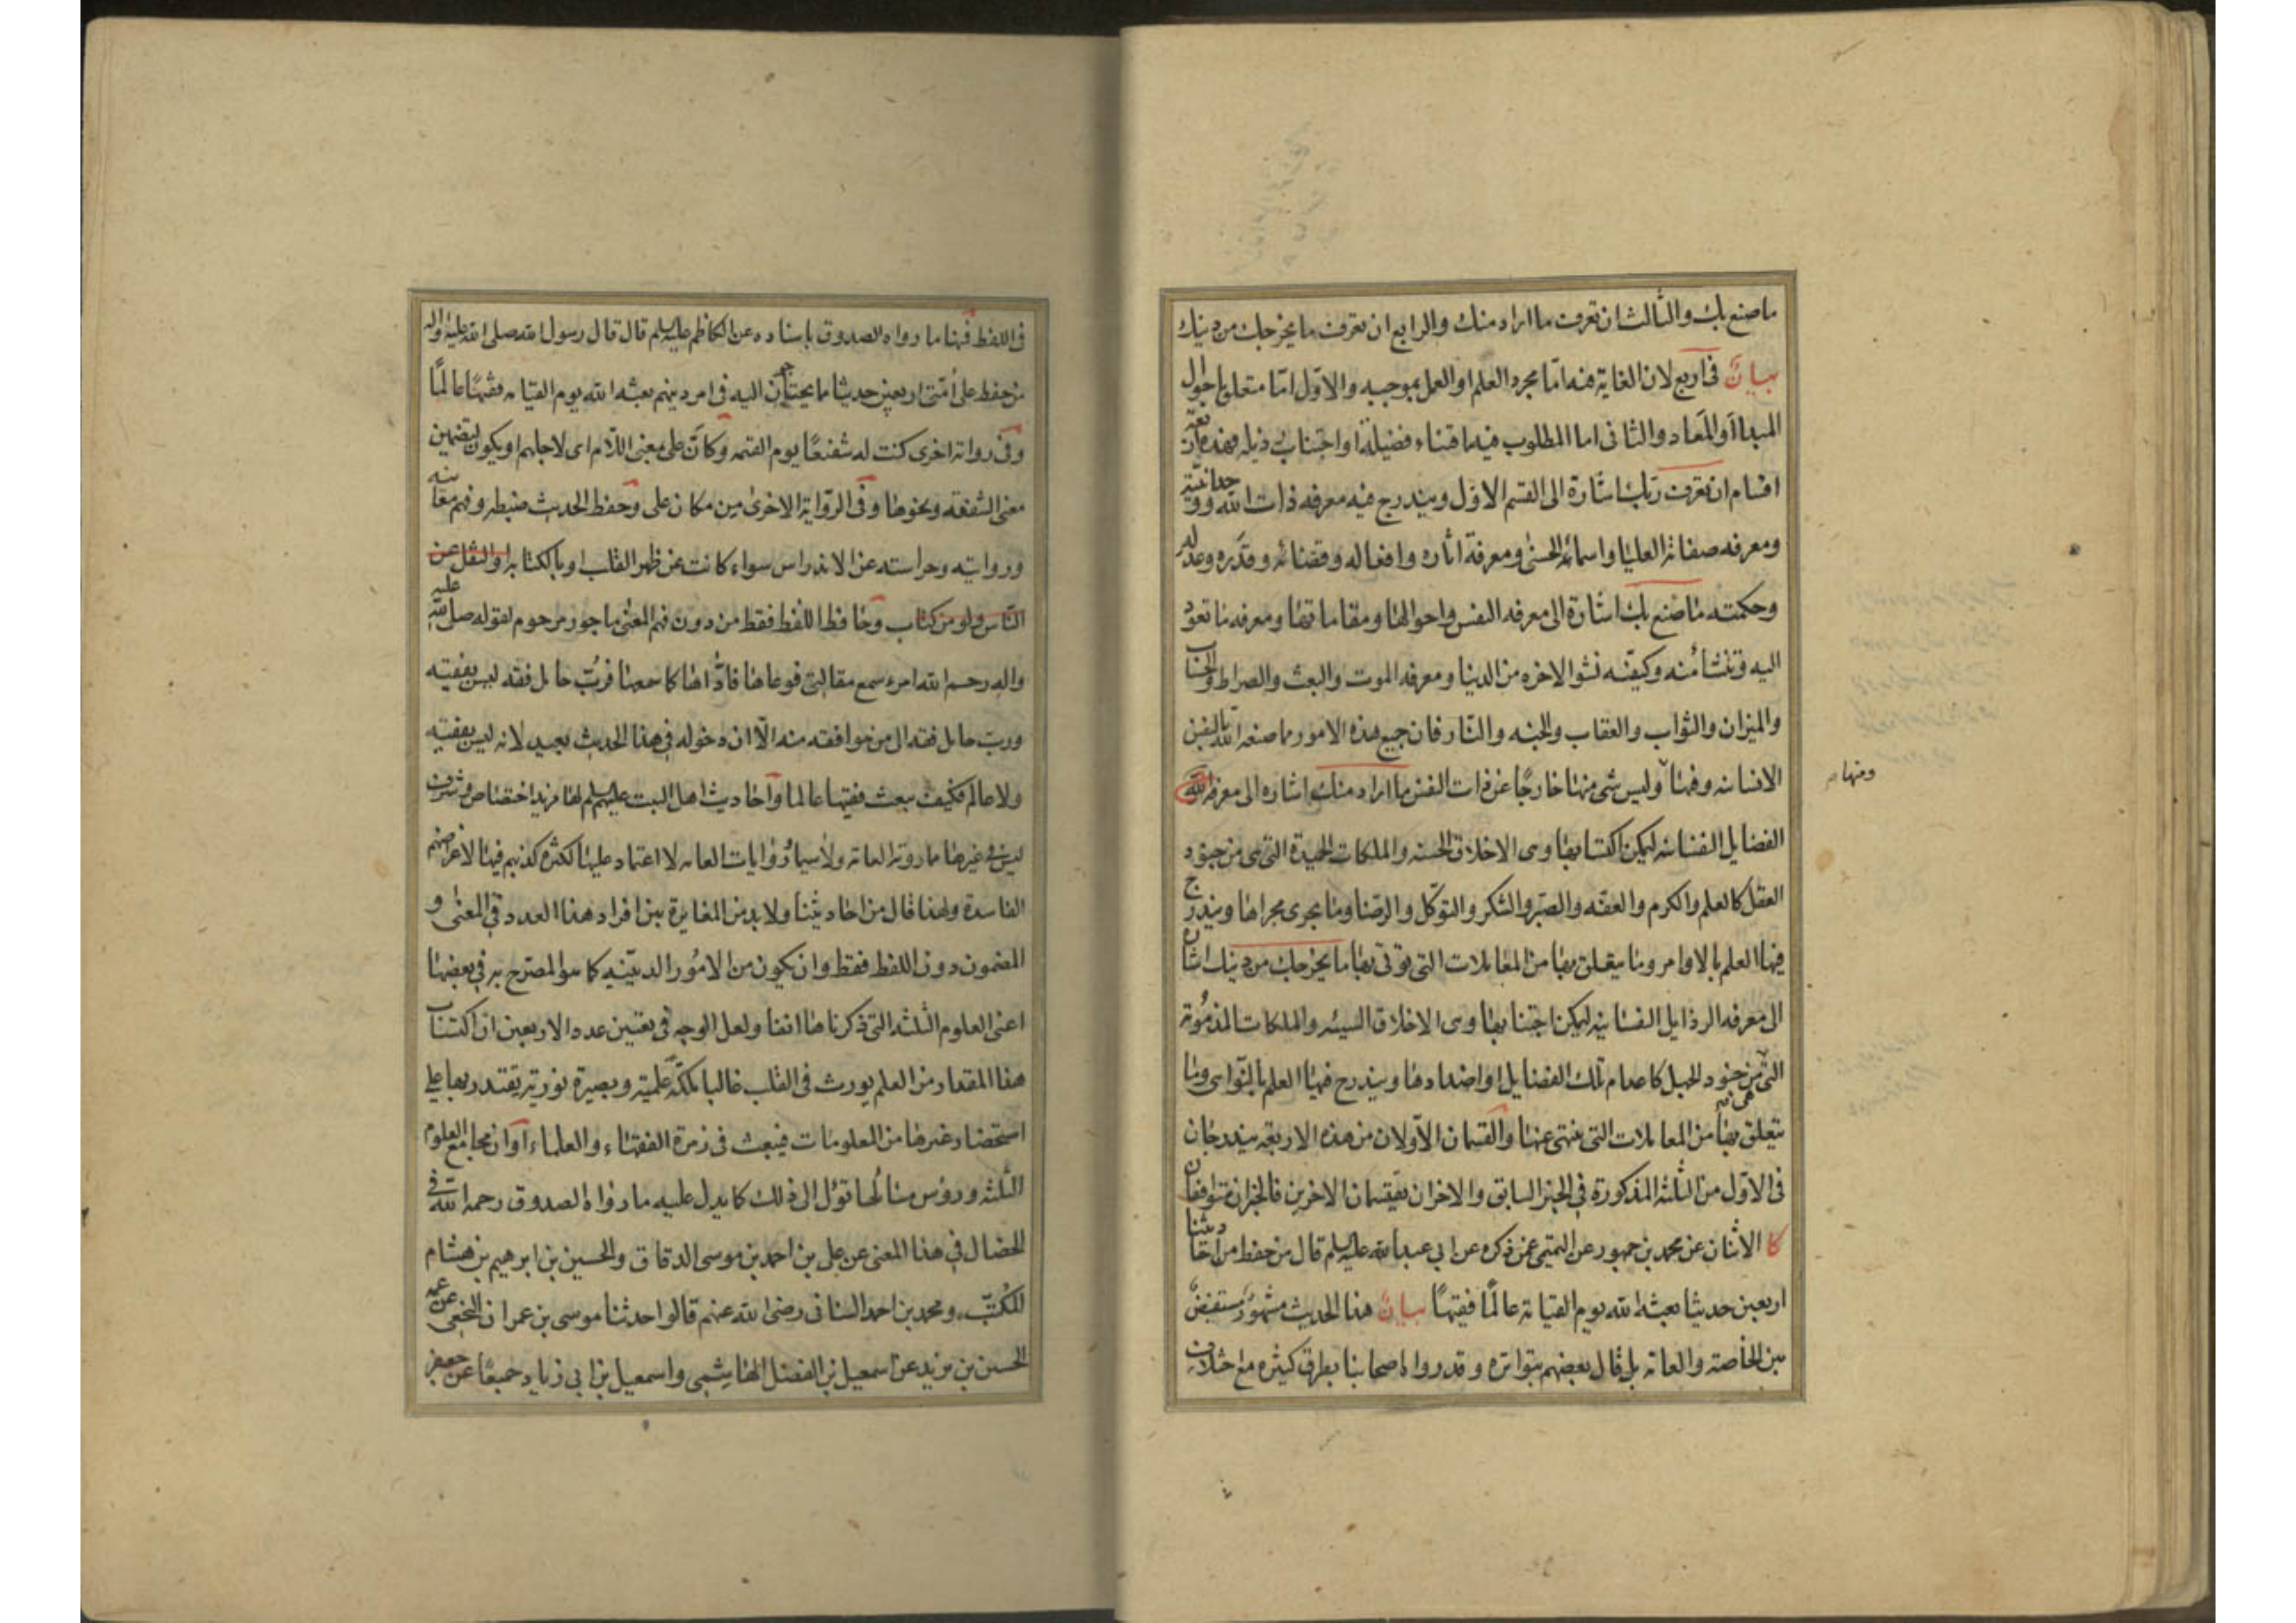 ما صنع بك والثالث ان تعرف ما اراد منك والرابع ان تعرف ما يخرجك من دينك
بيان فى اربع لان الغاية منه اما مجرد العلم او العمل بموجبه والاول اما متعلق باحوال
المبدا او المعاد والثانى اما المطلوب فيه اقتناء فضيلة او اجتناب رذيلة فهذه اربعة
اقسام ان تعرف ربك اشارة الى القسم الاول ويندرج فيه معرفه ذات الله ووحدانيته
ومعرفه صفاته العليا واسمائه الحسنى ومعرفة اثاره وافعاله وقضائه وقدره وعدله
وحكمته ما صنع بك اشارة الى معرفه النفس واحوالها ومقاماتها ومعرفه ما تعود
اليه وتنشا منه وكيفيه نشو الاخره من الدنيا ومعرفه الموت والبعث والصراط والحساب
والميزان والثواب والعقاب والجنه والنار فان جميع هذه الامور مما صنعه الله بالنفس
الانسانيه وفيها وليس شى منها خارجا عن ذات النفس ما اراد منك اشاره الى معرفه
ومنها
الفضايل النفسانيه ليمكن اكتسابها وهى الاخلاق الحسنه والملكات الحميدة التى هى من جنود
العقل كالعلم والكرم والعفه والصبر والشكر والتوكل والرضا وما يجرى مجراها ويندرج
فيها العلم بالاوامر وما يتعلق بها من المعاملات التى توتى بها ما يخرجك من دينك اشارة
الى معرفه الرذايل النفسانيه ليمكن اجتنابها وهى الاخلاق السيئه والملكات المذمومة
التى هى من جنود الجهل كاعدام تلك الفضايل او اضدادها ويندرج فيها العلم بالنواهى وما
يتعلق بها من المعاملات التى ينتهى عنها والقسمان الاولان من هذه الاربعة يندرجان
فى الاول من الثلثه المذكورة فى الخبر السابق والاخران يقتسمان الاخرين فالخبران متوافقان
كا الاثنان عن محمد بن جمهور عن التميمى عمن ذكره عن ابى عبد الله عليه السلم قال من حفظ من احاديثنا
اربعين حديثا بعثه الله يوم القيامة عالما فقيها بيان هذا الحديث مشهور مستفيض
بين الخاصة والعامة بل قال بعضهم بتواتره وقد رواه اصحابنا بطرق كثيره مع اختلاف
فى اللفظ فمنها ما رواه الصدوق باسناده عن الكاظم عليه السلم قال قال رسول الله صلى الله عليه واله
من حفظ على امتى اربعين حديثا مما يحتاجون اليه فى امر دينهم بعثه الله يوم القيامه فقيها عالما
وفى رواية اخرى كنت له شفيعا يوم القيمه وكان على بمعنى اللام اى لاجلهم او يكون لتضمين
معنى الشفقه ونحوها وفى الرواية الاخرى من مكان على وحفظ الحديث ضبطه وفهم معانيه
وروايته وحراسته عن الاندراس سواء كانت عن ظهر القلب او بالكتابه او النقل عن
الناس ولو من كتاب وحافظ اللفظ فقط من دون فهم المعنى ماجور مرحوم لقوله صلى الله عليه
واله رحم الله امرء سمع مقالتى فوعاها فاداها كما سمعها فرب حامل فقه ليس بفقيه
ورب حامل فقه الى من هو افقه منه الا ان دخوله فى هذا الحديث بعيد لانه ليس بفقيه
ولا عالم فكيف يبعث فقيها عالما واحاديث اهل البيت عليهم السلم لها مزيد اختصاص وشرف
ليس فى غيرها مما روته العامه ولا سيما روايات العامه لا اعتماد عليها لكثره كذبهم فيها لاغراضهم
الفاسدة ولهذا قال من احاديثنا ولا بد من المغايرة بين افراد هذا العدد فى المعنى و
المضمون دون اللفظ فقط وان يكون من الامور الدينيه كما هو المصرح به فى بعضها
اعنى العلوم الثلثه التى ذكرناها انفا ولعل الوجه فى تعيين عدد الاربعين ان اكتساب
هذا المقدار من العلم يورث فى القلب غالبا ملكة علمية وبصيرة نورية يقتدر بها على
استحضار غيرها من المعلومات فيبعث فى زمرة الفقهاء والعلماء او ان مجامع العلوم
الثلثه ورؤس مسائلها تؤل الى ذلك كما يدل عليه ما رواه الصدوق رحمه الله فى
الخصال فى هذا المعنى عن على بن احمد بن موسى الدقاق والحسين بن ابرهيم بن هشام
المكتب ومحمد بن احمد السنانى رضى الله عنهم قالوا حدثنا موسى بن عمران النخعى عن عمه
الحسين بن يزيد عن اسمعيل بن الفضل الهاشمى واسمعيل بن ابى زياد جميعا عن جعفر